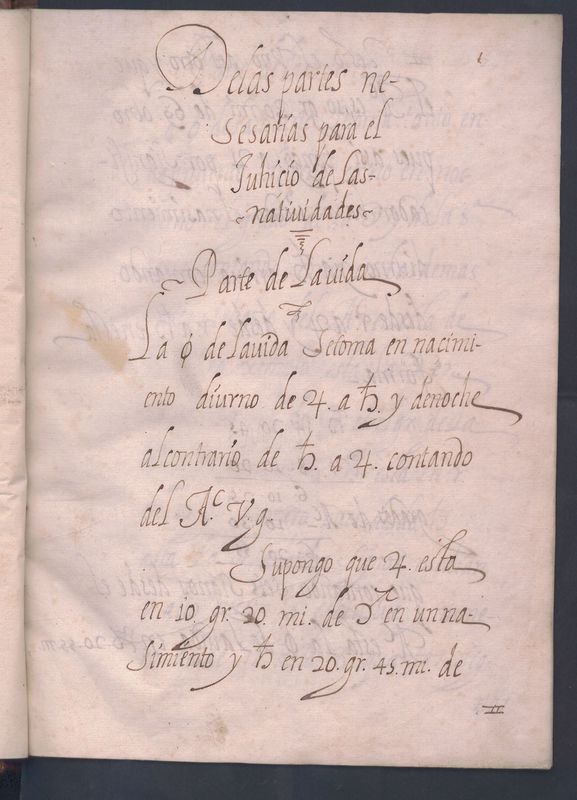 Delas partes ne-
Sesarias para el
Juhicio de las
natividades
Parte de Lavida
La ϕ de Lavida Setoma en nacimi-
ento diurno de ♃. a ♄. y denoche
alcontrario de ♄. a ♃. contando
del A.c V.g.
Supongo que ♃. esta
en 10. gr. 20. mi. de en unna-
Simiento y ♄ en 20. gr. 45. mi. de